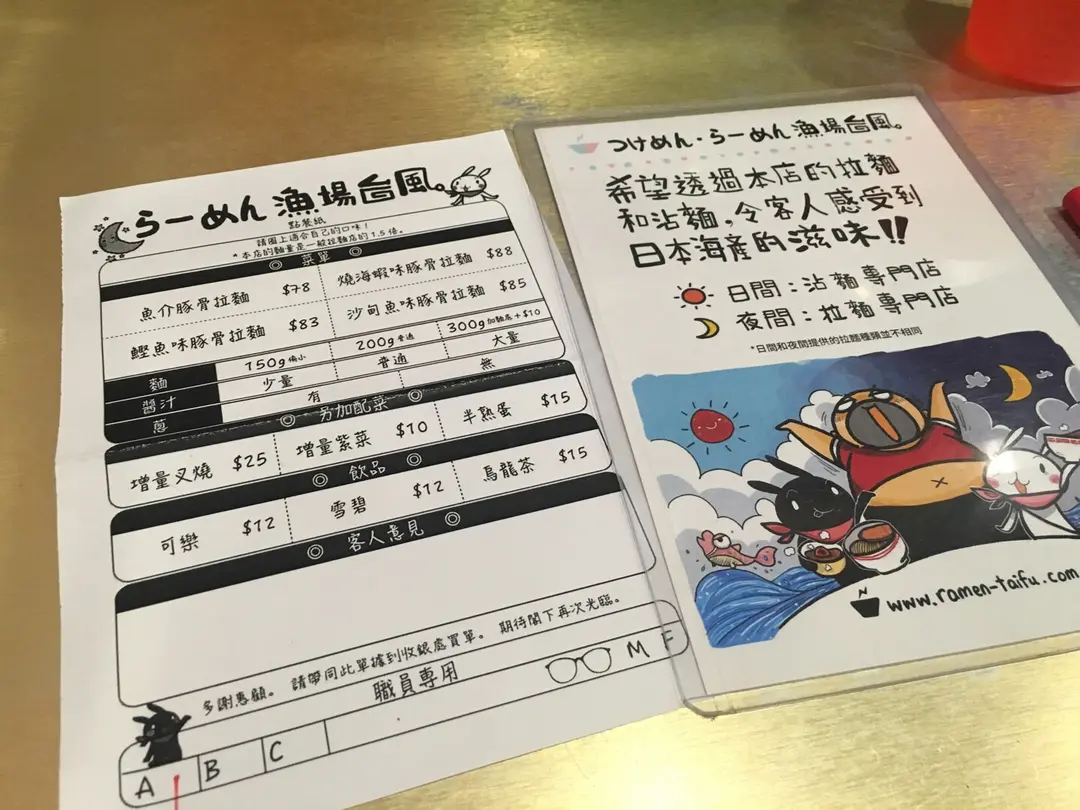 らーめん 漁場台風。
點餐紙
請圈上適合自己的口味！
*本店的麵量是一般拉麵店的1.5倍。
◎ 菜單 ◎
魚介豚骨拉麵 $78 燒海蝦味豚骨拉麵 $88
鰹魚味豚骨拉麵 $83 沙甸魚味豚骨拉麵 $85
麵 150g 偏小 200g 普通 300g 加麵底+$10
醬汁 少量 普通 大量
蔥 有 無
◎ 另加配菜 ◎
增量叉燒 $25 增量紫菜 $10 半熟蛋 $15
◎ 飲品 ◎
可樂 $12 雪碧 $12 烏龍茶 $15
◎ 客人意見 ◎
多謝惠顧。 請帶同此單據到收銀處買單。 期待閣下再次光臨。
職員專用
M F
A B C
つけめん・らーめん 漁場台風。
希望透過本店的拉麵
和沾麵，令客人感受到
日本海產的滋味!!
日間：沾麵專門店
夜間：拉麵專門店
*日間和夜間提供的拉麵種類並不相同
www.ramen-taifu.com